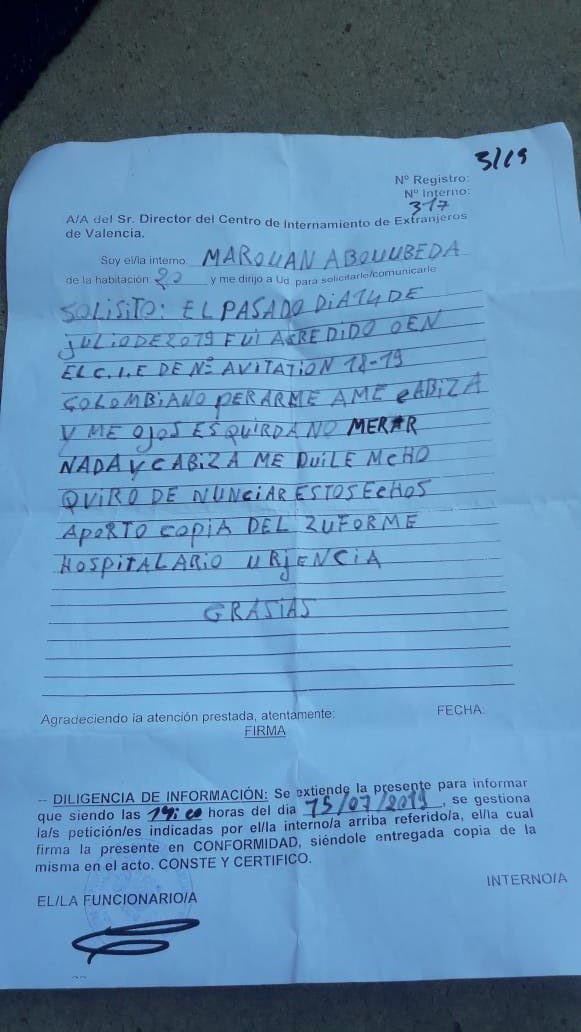 Nº Registro: 3/19
Nº Interno: 317
A/A del Sr. Director del Centro de Internamiento de Extranjeros
de Valencia.
Soy el/la interno: MAROUAN ABOUUBEDA
de la habitación 20 y me dirijo a Ud. para solicitarle/comunicarle
SOLISITO: EL PASADO DIA 14 DE
JULIO DE 2019 FUI AGREDIDO OEN
EL C.I.E DE Nº AVITATION 18-19
COLOMBIANO PERARME AME CABIZA
Y ME OJOS ESQUIRDA NO MERAR
NADA Y CABIZA ME DUILE MCHO
QUIRO DE NUNCIAR ESTOS ECHOS
APORTO COPIA DEL ZUFORME
HOSPITALARIO URJENCIA
GRASIAS
Agradeciendo la atención prestada, atentamente:
FECHA:
FIRMA
-- DILIGENCIA DE INFORMACIÓN: Se extiende la presente para informar
que siendo las horas del día 15/07/2019, se gestiona
la/s petición/es indicadas por el/la interno/a arriba referido/a, el/la cual
firma la presente en CONFORMIDAD, siéndole entregada copia de la
misma en el acto. CONSTE Y CERTIFICO.
INTERNO/A
EL/LA FUNCIONARIO/A